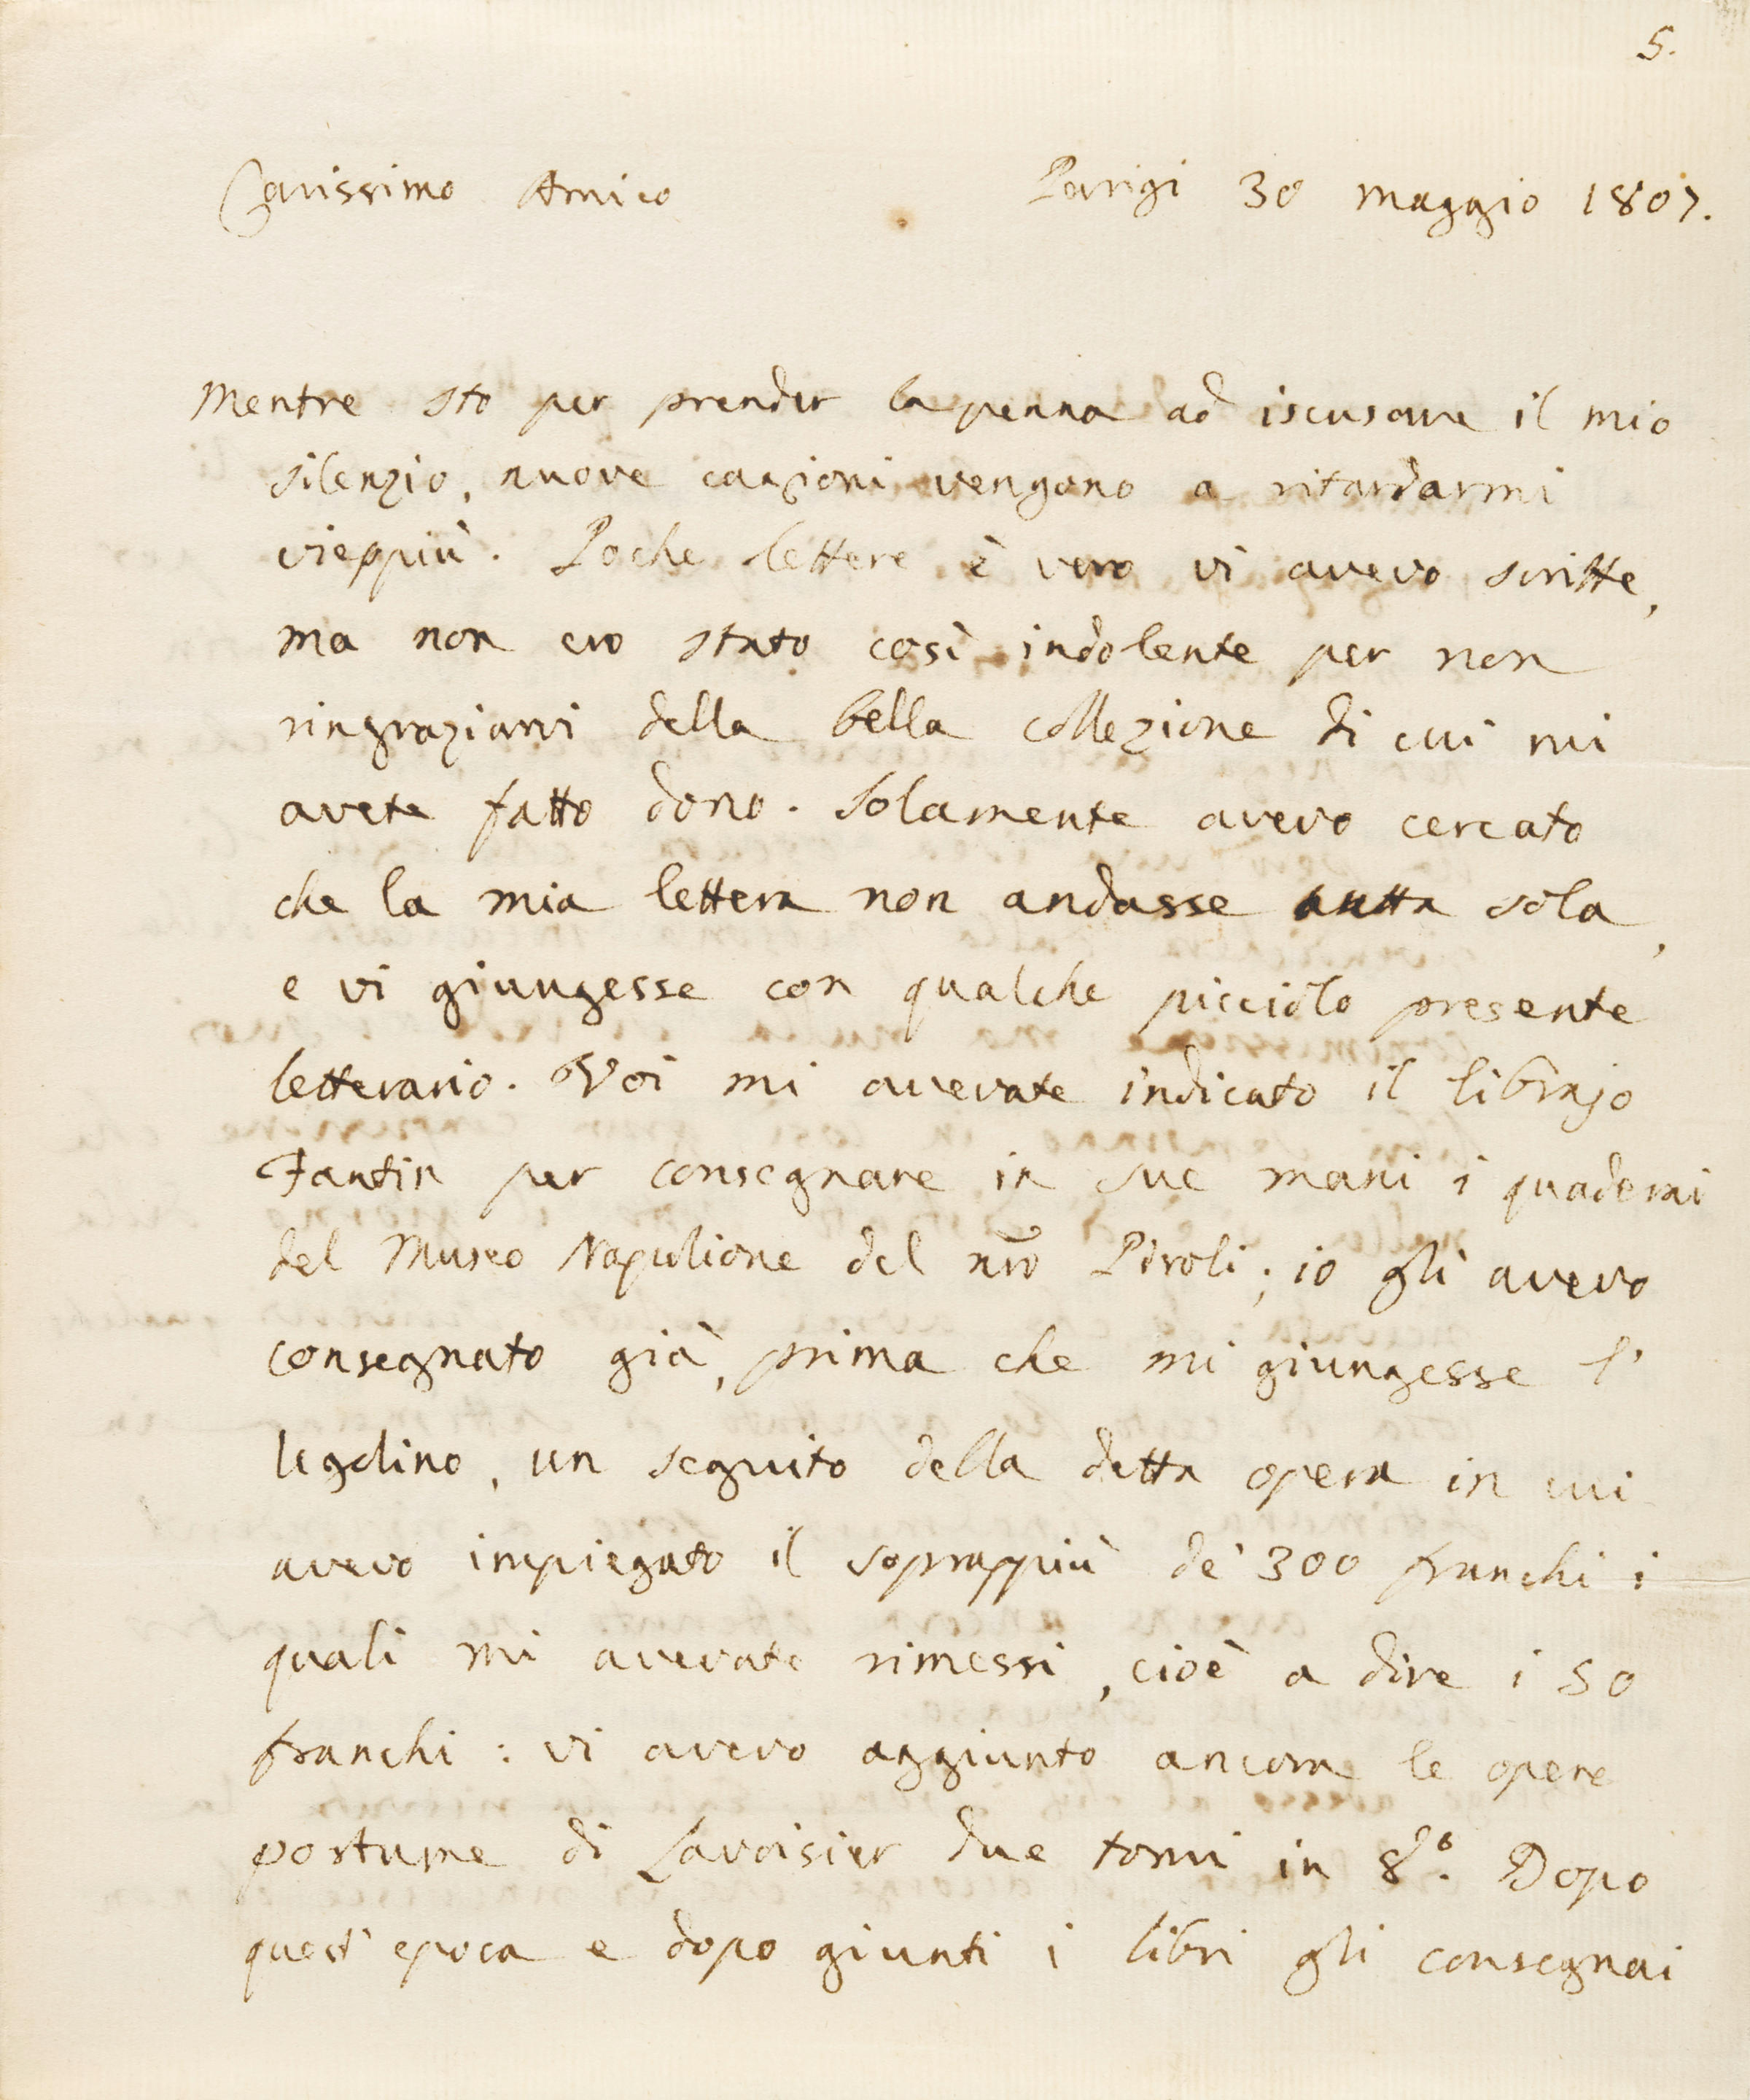 5.
Carissimo Amico Parigi 30 maggio 1807.
Mentre sto per prender la penna ad iscusare il mio
silenzio, nuove cagioni vengono a ritardarmi
vieppiù. Poche lettere è vero vi avevo scritte,
ma non ero stato così indolente per non
ringraziarvi della bella collezione di cui mi
avete fatto dono. Solamente avevo cercato
che la mia lettera non andasse tutta sola,
e vi giungesse con qualche picciolo presente
letterario. Voi mi avevate indicato il librajo
Fantin per consegnare in sue mani i quaderni
del Museo Napolione del nrõ Piroli; io gli avevo
consegnato già, prima che mi giungesse l'
un seguito della detta opera in cui
avevo impiegato il soprappiù de' 300 franchi i
quali mi avevate rimessi, cioè a dire i 50
franchi: vi avevo aggiunto ancora le opere
postume di Lavoisier due tomi in 8.º Dopo
quest' epoca e dopo giunti i libri gli consegnai